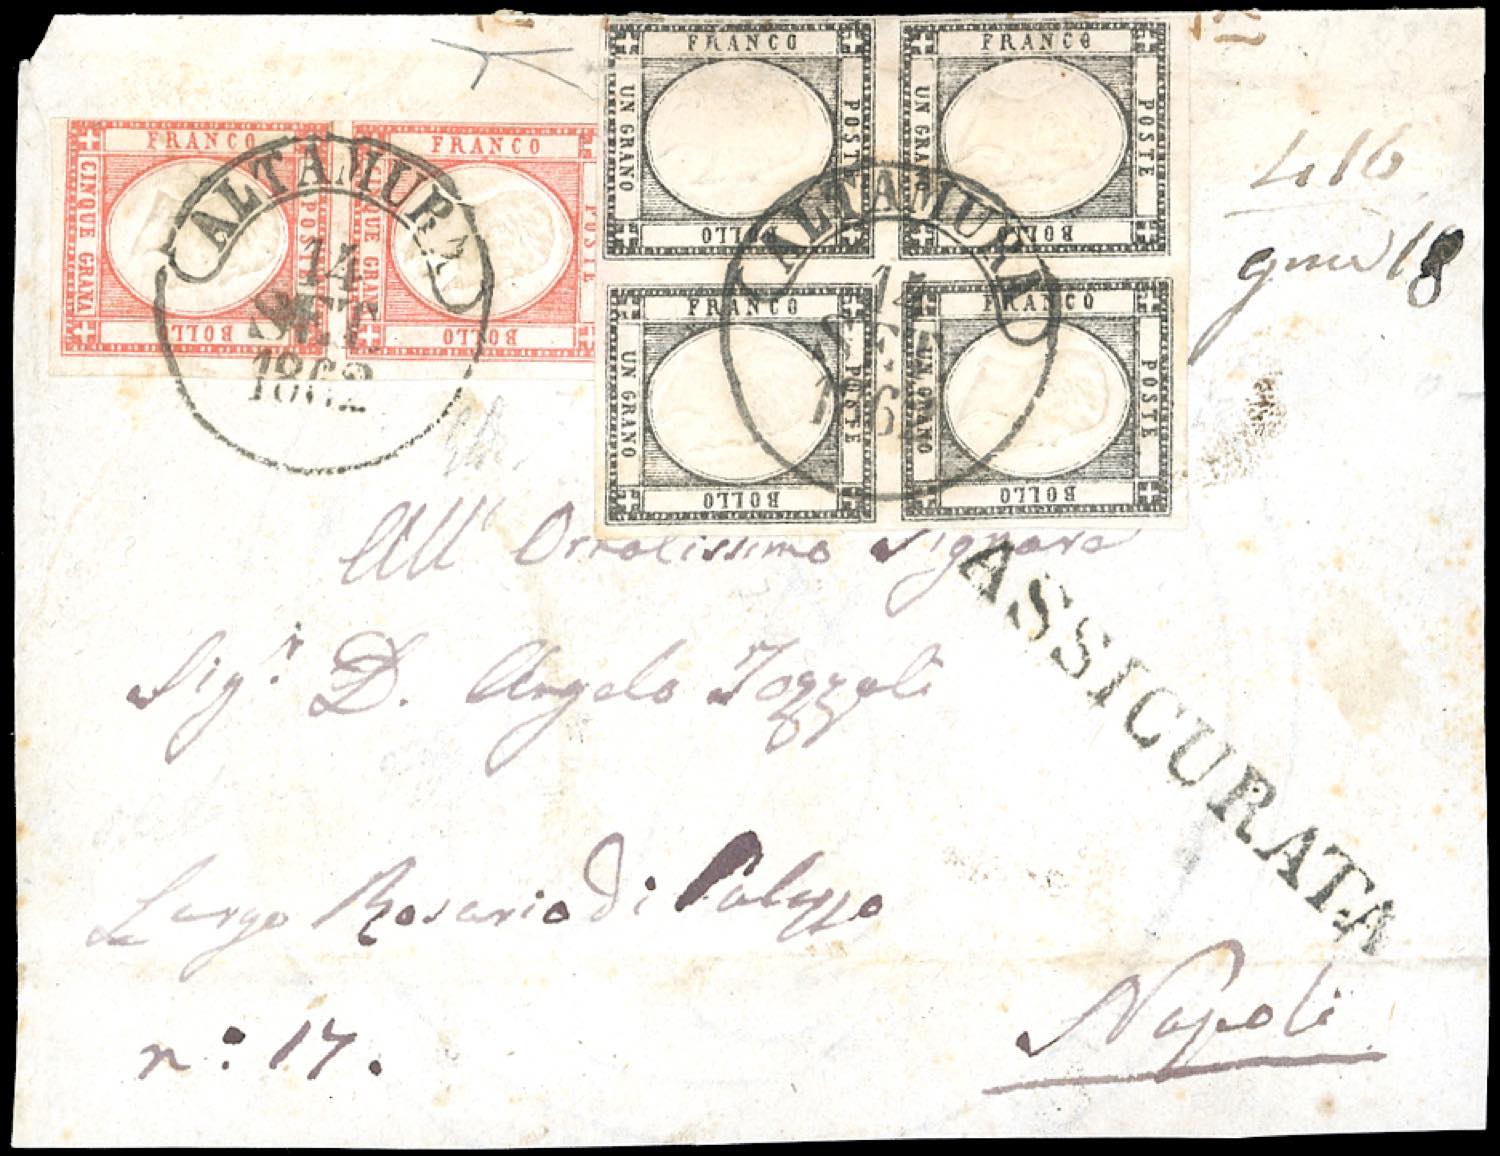 FRANCO FRANCO
CINQUE GRANA POSTE CINQUE GRANA POSTE
BOLLO BOLLO
FRANCO FRANCO
UN GRANO POSTE UN GRANO POSTE
BOLLO BOLLO
FRANCO FRANCO
UN GRANO POSTE UN GRANO POSTE
BOLLO BOLLO
ALTAMURA
14
SET.
1862
ALTAMURA
14
416
18
All' Ornatissimo Signore
Sig.r D. Angelo Tozzoli
Largo Rosario di Palazzo
n.° 17.
Napoli
ASSICURATA